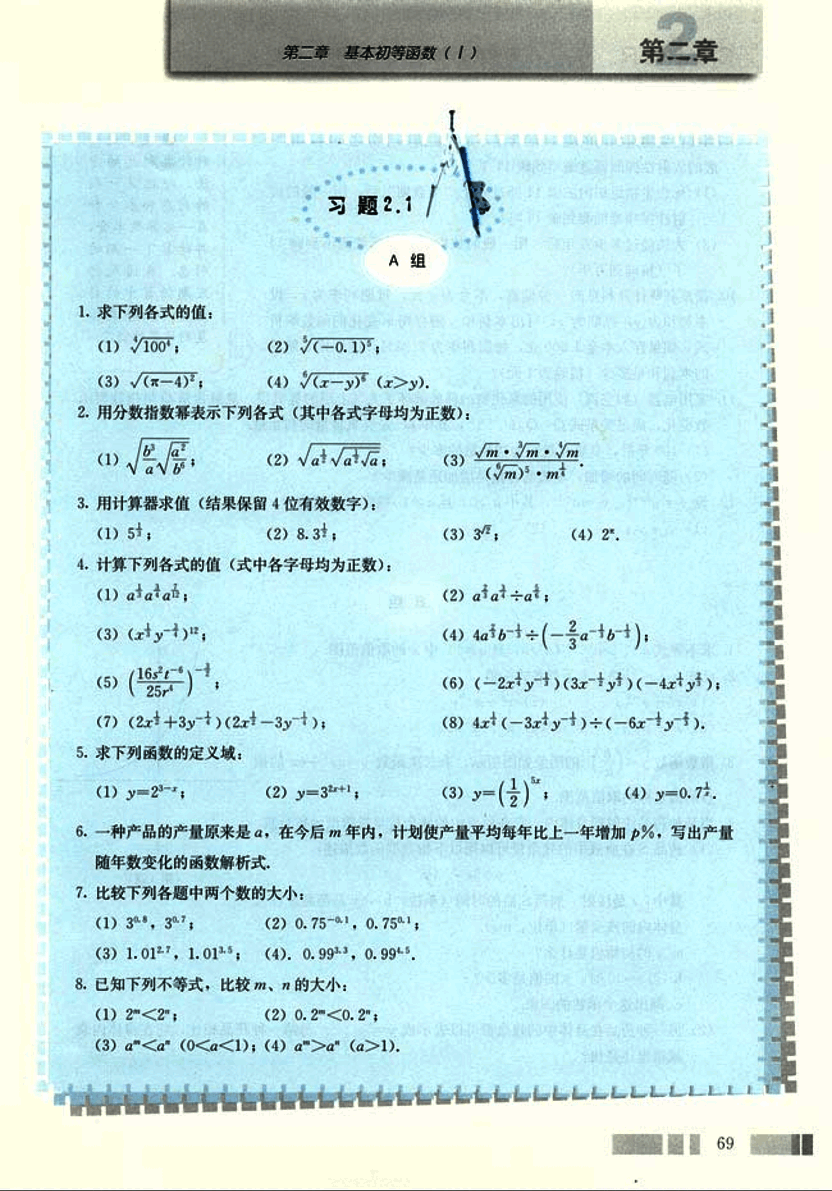 第二章 基本初等函数(Ⅰ)
第二章
习题2.1
A 组
1. 求下列各式的值:
(1) ∜(100⁴); (2) ⁵√((-0.1)⁵);
(3) √((π-4)²); (4) ⁶√((x-y)⁶) (x>y).
2. 用分数指数幂表示下列各式(其中各式字母均为正数):
(1) √(b³/a √(a²/b⁶)); (2) √(a^(1/2) √(a^(1/2) √a)); (3) (√m·∛m·∜m)/((⁶√m)⁵·m^(1/4)).
3. 用计算器求值(结果保留 4 位有效数字):
(1) 5^(1/3); (2) 8.3^(1/2); (3) 3^√2; (4) 2^π.
4. 计算下列各式的值(式中各字母均为正数):
(1) a^(1/3)a^(3/4)a^(7/12); (2) a^(2/3)a^(3/4)÷a^(5/6);
(3) (x^(1/3)y^(-3/4))^12; (4) 4a^(2/3)b^(-1/3)÷(-2/3 a^(-1/3)b^(-1/3));
(5) (16s²t^(-6)/25r⁴)^(-3/2); (6) (-2x^(1/4)y^(-1/3))(3x^(-1/2)y^(2/3))(-4x^(1/4)y^(2/3));
(7) (2x^(1/2)+3y^(-1/4))(2x^(1/2)-3y^(-1/4)); (8) 4x^(1/4)(-3x^(1/4)y^(-1/3))÷(-6x^(-1/2)y^(-2/3)).
5. 求下列函数的定义域:
(1) y=2^(3-x); (2) y=3^(2x+1); (3) y=(1/2)^(5x); (4) y=0.7^(1/x).
6. 一种产品的产量原来是 a, 在今后 m 年内, 计划使产量平均每年比上一年增加 p%, 写出产量
随年数变化的函数解析式.
7. 比较下列各题中两个数的大小:
(1) 3^0.8, 3^0.7; (2) 0.75^(-0.1), 0.75^0.1;
(3) 1.01^2.7, 1.01^3.5; (4). 0.99^3.3, 0.99^4.5.
8. 已知下列不等式, 比较 m、n 的大小:
(1) 2^m<2^n; (2) 0.2^m<0.2^n;
(3) a^m<a^n (0<a<1); (4) a^m>a^n (a>1).
69